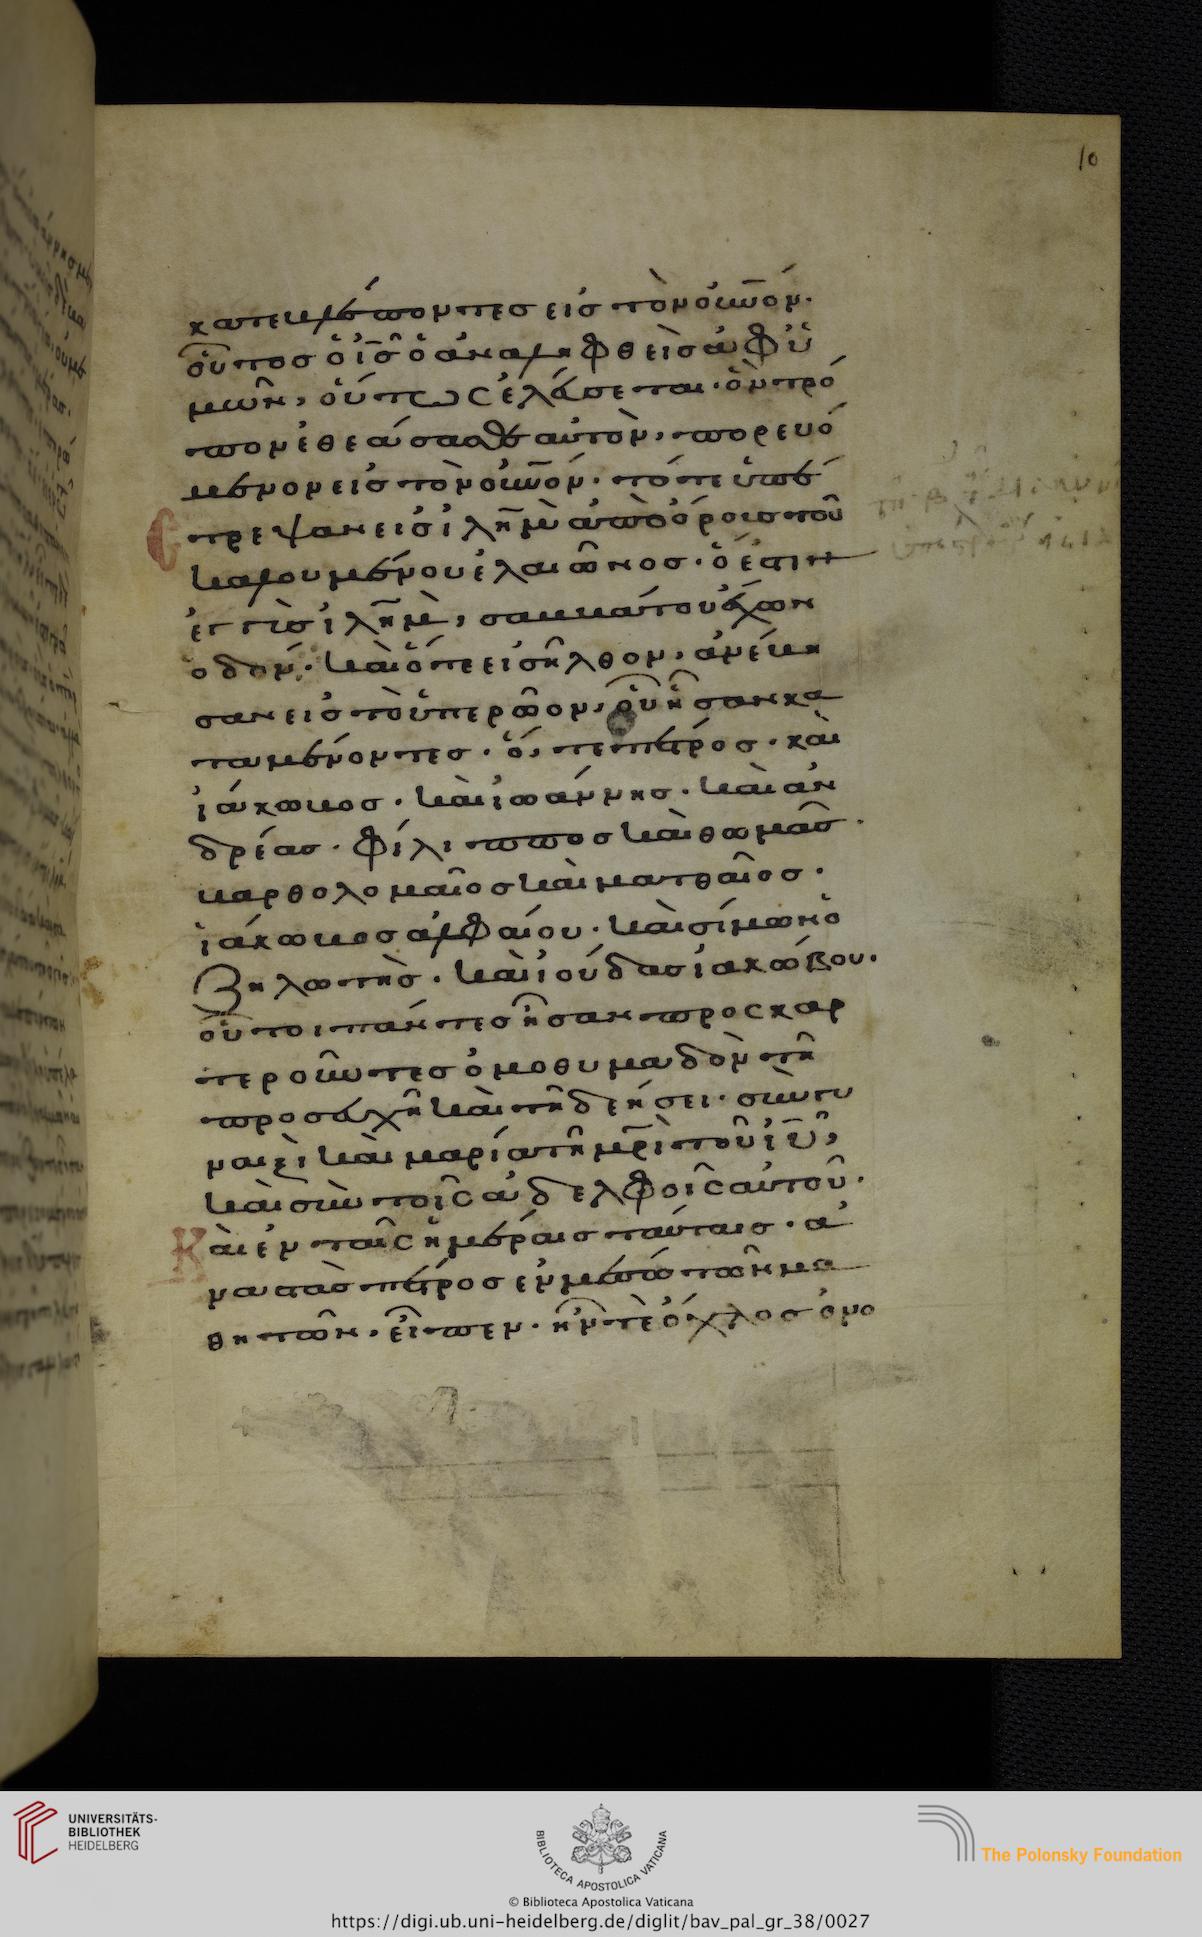 10
κατεμβλέποντες εἰς τὸν οὐ̅νο̅ν·
οὗτος ὁ ι̅ς̅ ὁ ἀναληφθεὶς ἀφ' ὑ
μῶν, οὕτως ἐλεύσεται· ὃν τρό
πον ἐθεάσασθε αὐτὸν, πορευό
μενον εἰς τὸν οὐ̅νο̅ν· τότε ὑπέ
στρεψαν εἰς ἰλ̅η̅μ̅ ἀπὸ ὄρους τοῦ
καλουμένου ἐλαιῶνος· ὅ ἐστιν
ἐγγὺς ἰλ̅η̅μ̅, σαββάτου ἔχων
ὁδόν· καὶ ὅτε εἰσῆλθον, ἀνέβη
σαν εἰς τὸ ὑπερῶον, οὗ ἦσαν κα
ταμένοντες· ὅ, τε πέτρος· καὶ
ἰάκωβος· καὶ ἰωάννης· καὶ ἀν
δρέας· φίλιππος καὶ θωμᾶς·
βαρθολομαῖος καὶ ματθαῖος·
ἰάκωβος ἀλφαίου· καὶ σίμων ὁ
ζηλωτὴς· καὶ ἰούδας ἰακώβου·
οὗτοι πάντες ἦσαν προσκαρ
τεροῦντες ὁμοθυμαδὸν τῆ
προσευχῆ καὶ τῆ δεήσει· σὺν γυ
ναιξὶ καὶ μαρία τῆ μ̅ρ̅ὶ τοῦ ἰ̅υ̅,
καὶ σὺν τοῖς ἀδελφοῖς αὐτοῦ·
Καὶ ἐν ταῖς ἡμέραις ταύταις· ἀ
ναστὰς πέτρος ἐν μέσω τῶν μα
θητῶν· εἶπεν· ἦν τὲ ὄχλος ὀνο
UNIVERSITÄTS-
BIBLIOTHEK
HEIDELBERG
BIBLIOTECA APOSTOLICA VATICANA
© Biblioteca Apostolica Vaticana
The Polonsky Foundation
https://digi.ub.uni-heidelberg.de/diglit/bav_pal_gr_38/0027